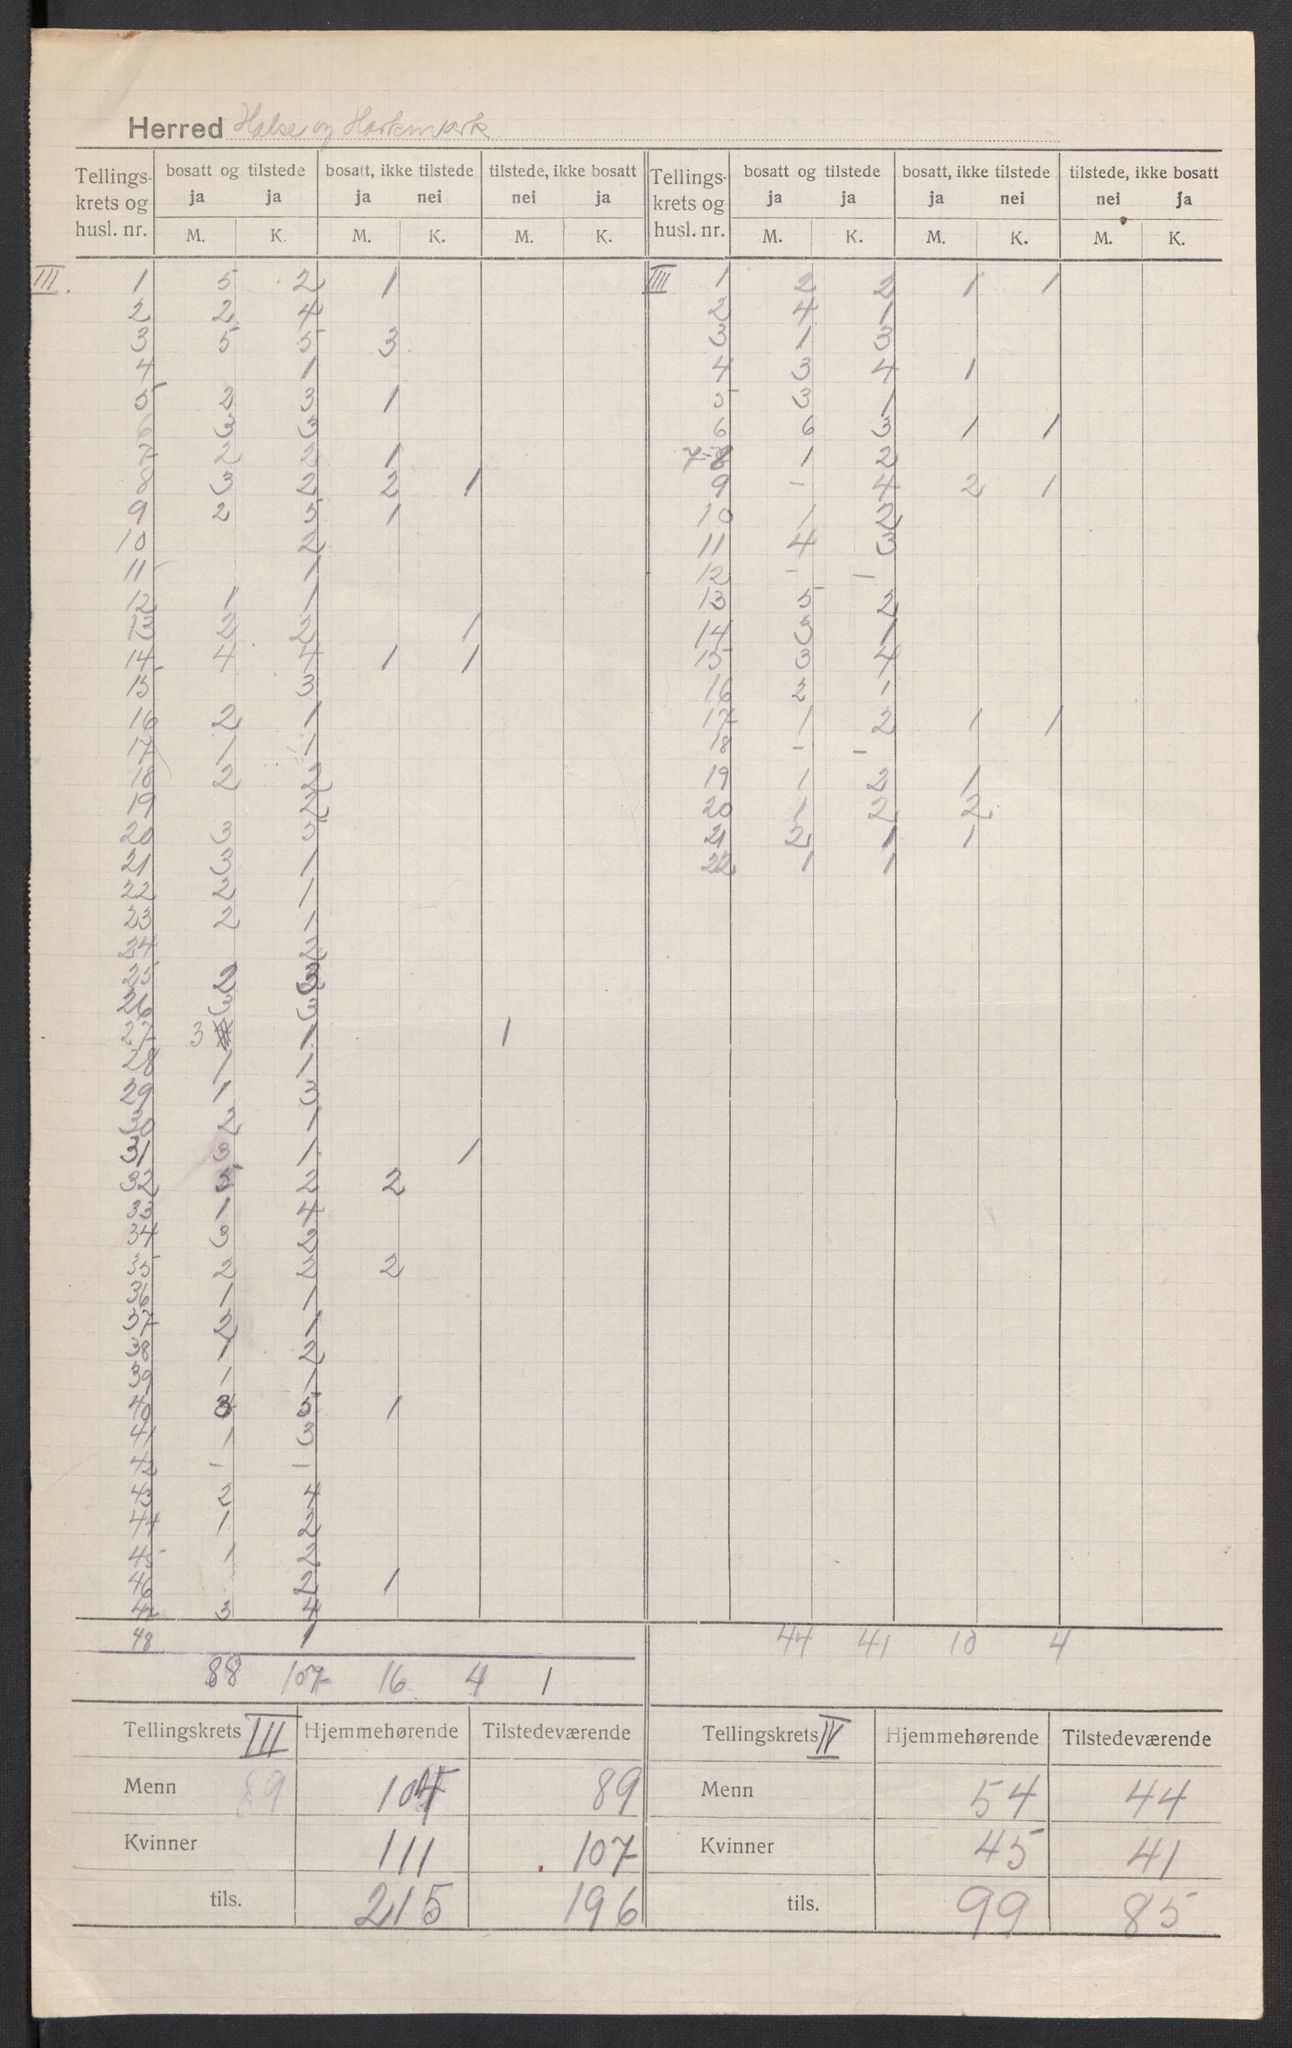 Herred Halse og Harkmark
Tellings-krets og husl. nr. | bosatt og tilstede ja ja | bosatt, ikke tilstede ja nei | tilstede, ikke bosatt nei ja | Tellings-krets og husl. nr. | bosatt og tilstede ja ja | bosatt, ikke tilstede ja nei | tilstede, ikke bosatt nei ja
M. K. M. K. M. K. M. K. M. K. M. K.
III. 1 5 2 1
2 2 4
3 5 5 3
4 1
5 2 3 1
6 3 3
7 2 2 1
8 3 2 2 1
9 2 5 1
10 2
11 1
12 1 1
13 2 2 1
14 4 4 1 1
15 3
16 2 1
17 1 1
18 2 2
19 2
20 3 5
21 3 1
22 2 1
23 2 1
24 2
25 2 3
26 3 3
27 3 1 1
28 1 1
29 1 3
30 2 1
31 3 1 1
32 2 2
33 1 4
34 3 2
35 2 2 2
36 1 1
37 2 1
38 1 2
39 1 1
40 3 5 1
41 1 3
42 1 1
43 2 4
44 1 2
45 1 2
46 2 1
47 3 4
48 1
88 107 16 4 1
IIII 1 2 2 1 1
2 4 1
3 1 3
4 3 4 1
5 3 1
6 6 3 1 1
7-8 1 2
9 - 4 2 1
10 1 2
11 4 3
12 - -
13 5 2
14 3 1
15 3 4
16 2 1
17 1 2 1 1
18 - -
19 1 2 1
20 1 2 2
21 2 1 1
22 1 1
44 41 10 4
Tellingskrets III Hjemmehørende Tilstedeværende
Menn 89 104 89
Kvinner 111 107
tils. 215 196
Tellingskrets IV Hjemmehørende Tilstedeværende
Menn 54 44
Kvinner 45 41
tils. 99 85